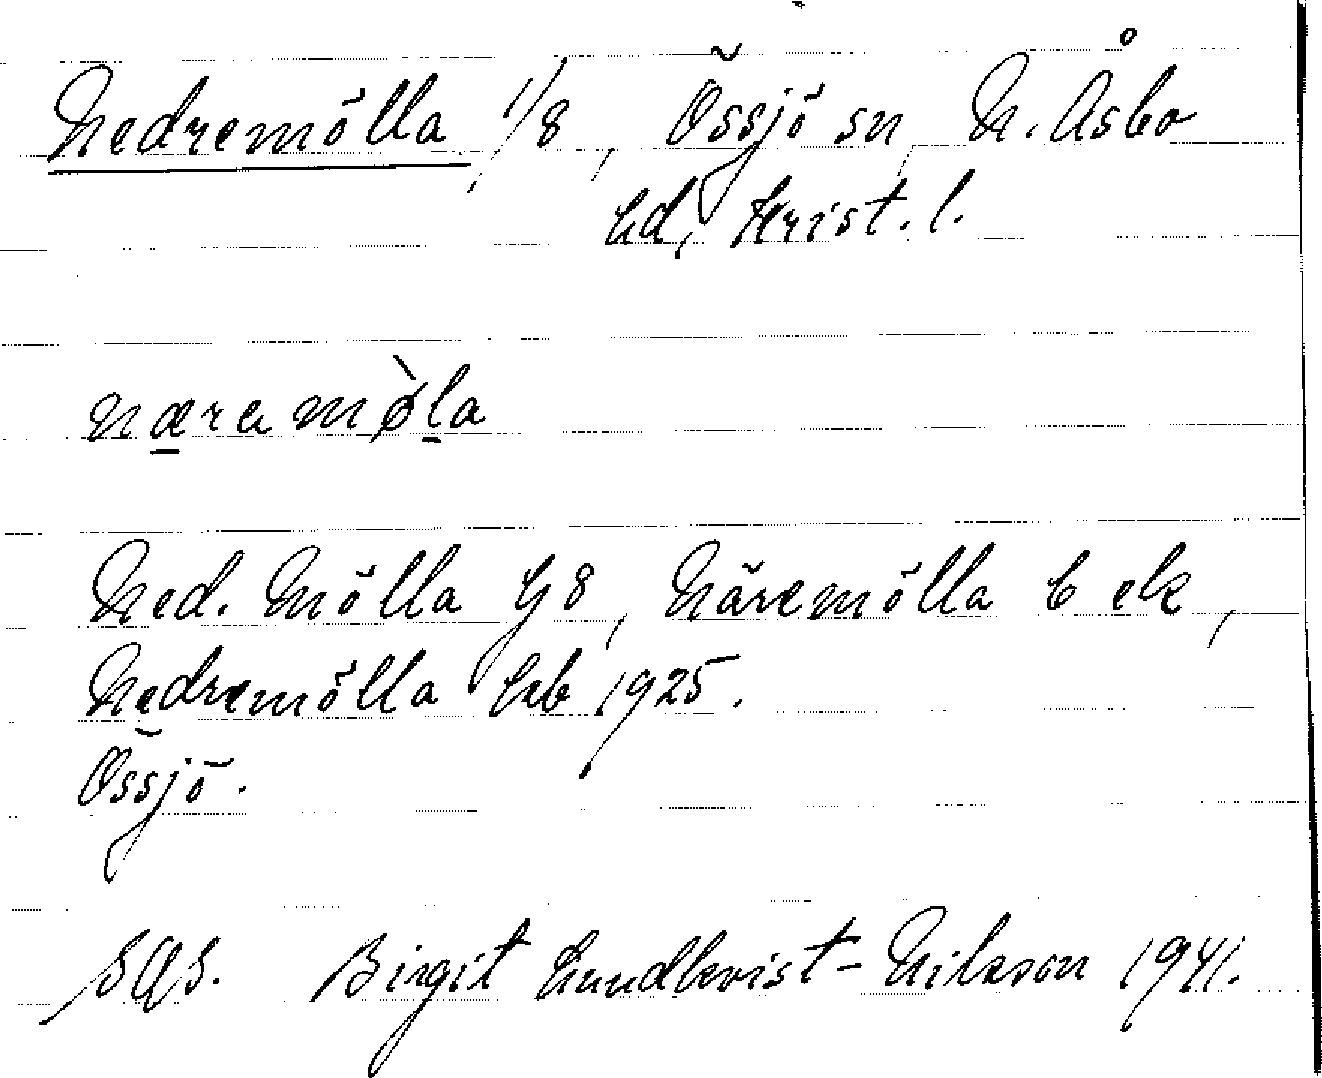 Nedremölla 1/8, Össjö sn, N. Åsbo
hd, Krist. l.
næramø̀la
Ned. Mölla G8, Näremölla C ek,
Nedremölla Jrb 1925.
Össjö.
SOS. Birgit Lundkvist-Nilsson 1941.